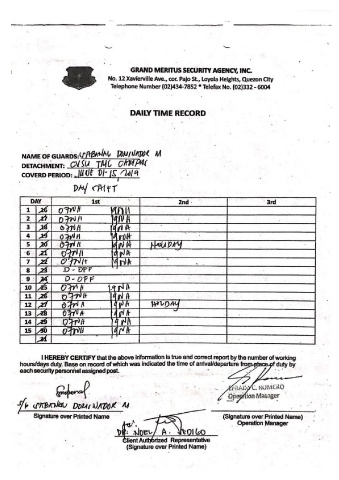 GRAND MERITUS SECURITY AGENCY, INC.
No. 12 Xavierville Ave., cor. Pajo St., Loyola Heights, Quezon City
Telephone Number (02)434-7852 * Telefax No. (02)332 - 6004
DAILY TIME RECORD
NAME OF GUARDS: DOMINADOR M
DETACHMENT: CVSU TMC CAMPUS
COVERD PERIOD: JUNE 01-15, 2019
DAY SHIFT
DAY 1st 2nd 3rd
1 16 07NH 19NH
2 17 07NH 19NH
3 18 07NH 19NH
4 19 07NH 19NH
5 20 07NH 19NH HOLIDAY
6 21 07NH 19NH
7 22 07NH 19NH
8 23 D-OFF
9 24 D-OFF
10 25 07NH 19NH
11 26 07NH 19NH
12 27 07NH 19NH HOLIDAY
13 28 07NH 19NH
14 29 07NH 19NH
15 30 07NH 19NH
31
I HEREBY CERTIFY that the above information is true and correct report by the number of working
hours/days duty. Base on record of which was indicated the time of arrival/departure from place of duty by
each security personnel assigned post.
ROMERO
Operation Manager
S/G DOMINADOR M
Signature over Printed Name (Signature over Printed Name)
Operation Manager
DR. NOEL A. SEDIGO
Client Authorized Representative
(Signature over Printed Name)